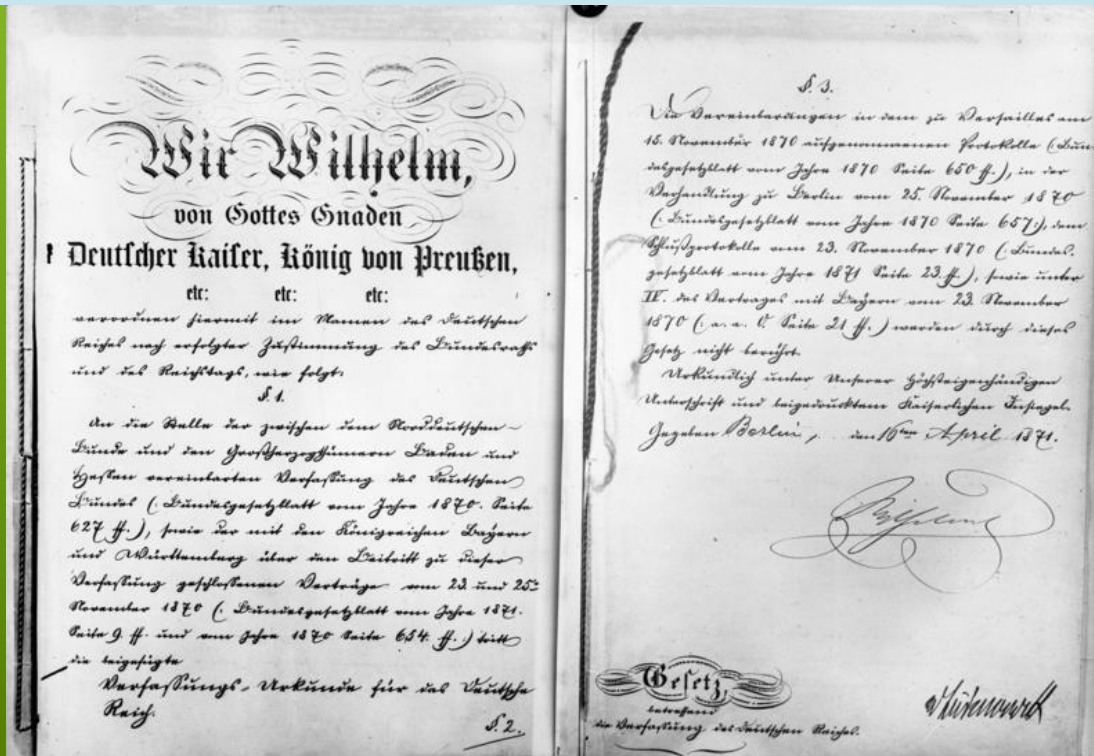 Wir Wilhelm,
von Gottes Gnaden
Deutscher Kaiser, König von Preußen,
etc: etc: etc:
verordnen hiermit im Namen des Deutschen
Reiches nach erfolgter Zustimmung des Bundesraths
und des Reichstags, wie folgt:
§. 1.
An die Stelle der zwischen dem Norddeutschen
Bunde und den Großherzogthümern Baden und
Hessen vereinbarten Verfassung des Deutschen
Bundes (: Bundesgesetzblatt vom Jahre 1870. Seite
627 ff.), sowie der mit den Königreichen Bayern
und Württemberg über den Beitritt zu dieser
Verfassung geschlossenen Verträge vom 23 und 25ten
November 1870 (: Bundesgesetzblatt vom Jahre 1871.
Seite 9. ff. und vom Jahre 1870 Seite 654. ff.:) tritt
die beigefügte
Verfassungs-Urkunde für das Deutsche
Reich.
§. 2.
§. 3.
Die Vereinbarungen in dem zu Versailles am
15. November 1870 aufgenommenen Protokolle (: Bun-
desgesetzblatt vom Jahre 1870 Seite 650 ff.), in der
Verhandlung zu Berlin vom 25. November 1870
(: Bundesgesetzblatt vom Jahre 1870 Seite 657:), dem
Schlußprotokolle vom 23. November 1870 (: Bundes-
gesetzblatt vom Jahre 1871 Seite 23. ff.), sowie unter
IV. des Vertrages mit Bayern vom 23. November
1870 (: a. a. O. Seite 21 ff.) werden durch dieses
Gesetz nicht berührt.
Urkundlich unter Unserer Höchsteigenhändigen
Unterschrift und beigedrucktem Kaiserlichen Insiegel.
Gegeben Berlin, den 16ten April 1871.
Wilhelm
Gesetz,
betreffend
die Verfassung des Deutschen Reiches.